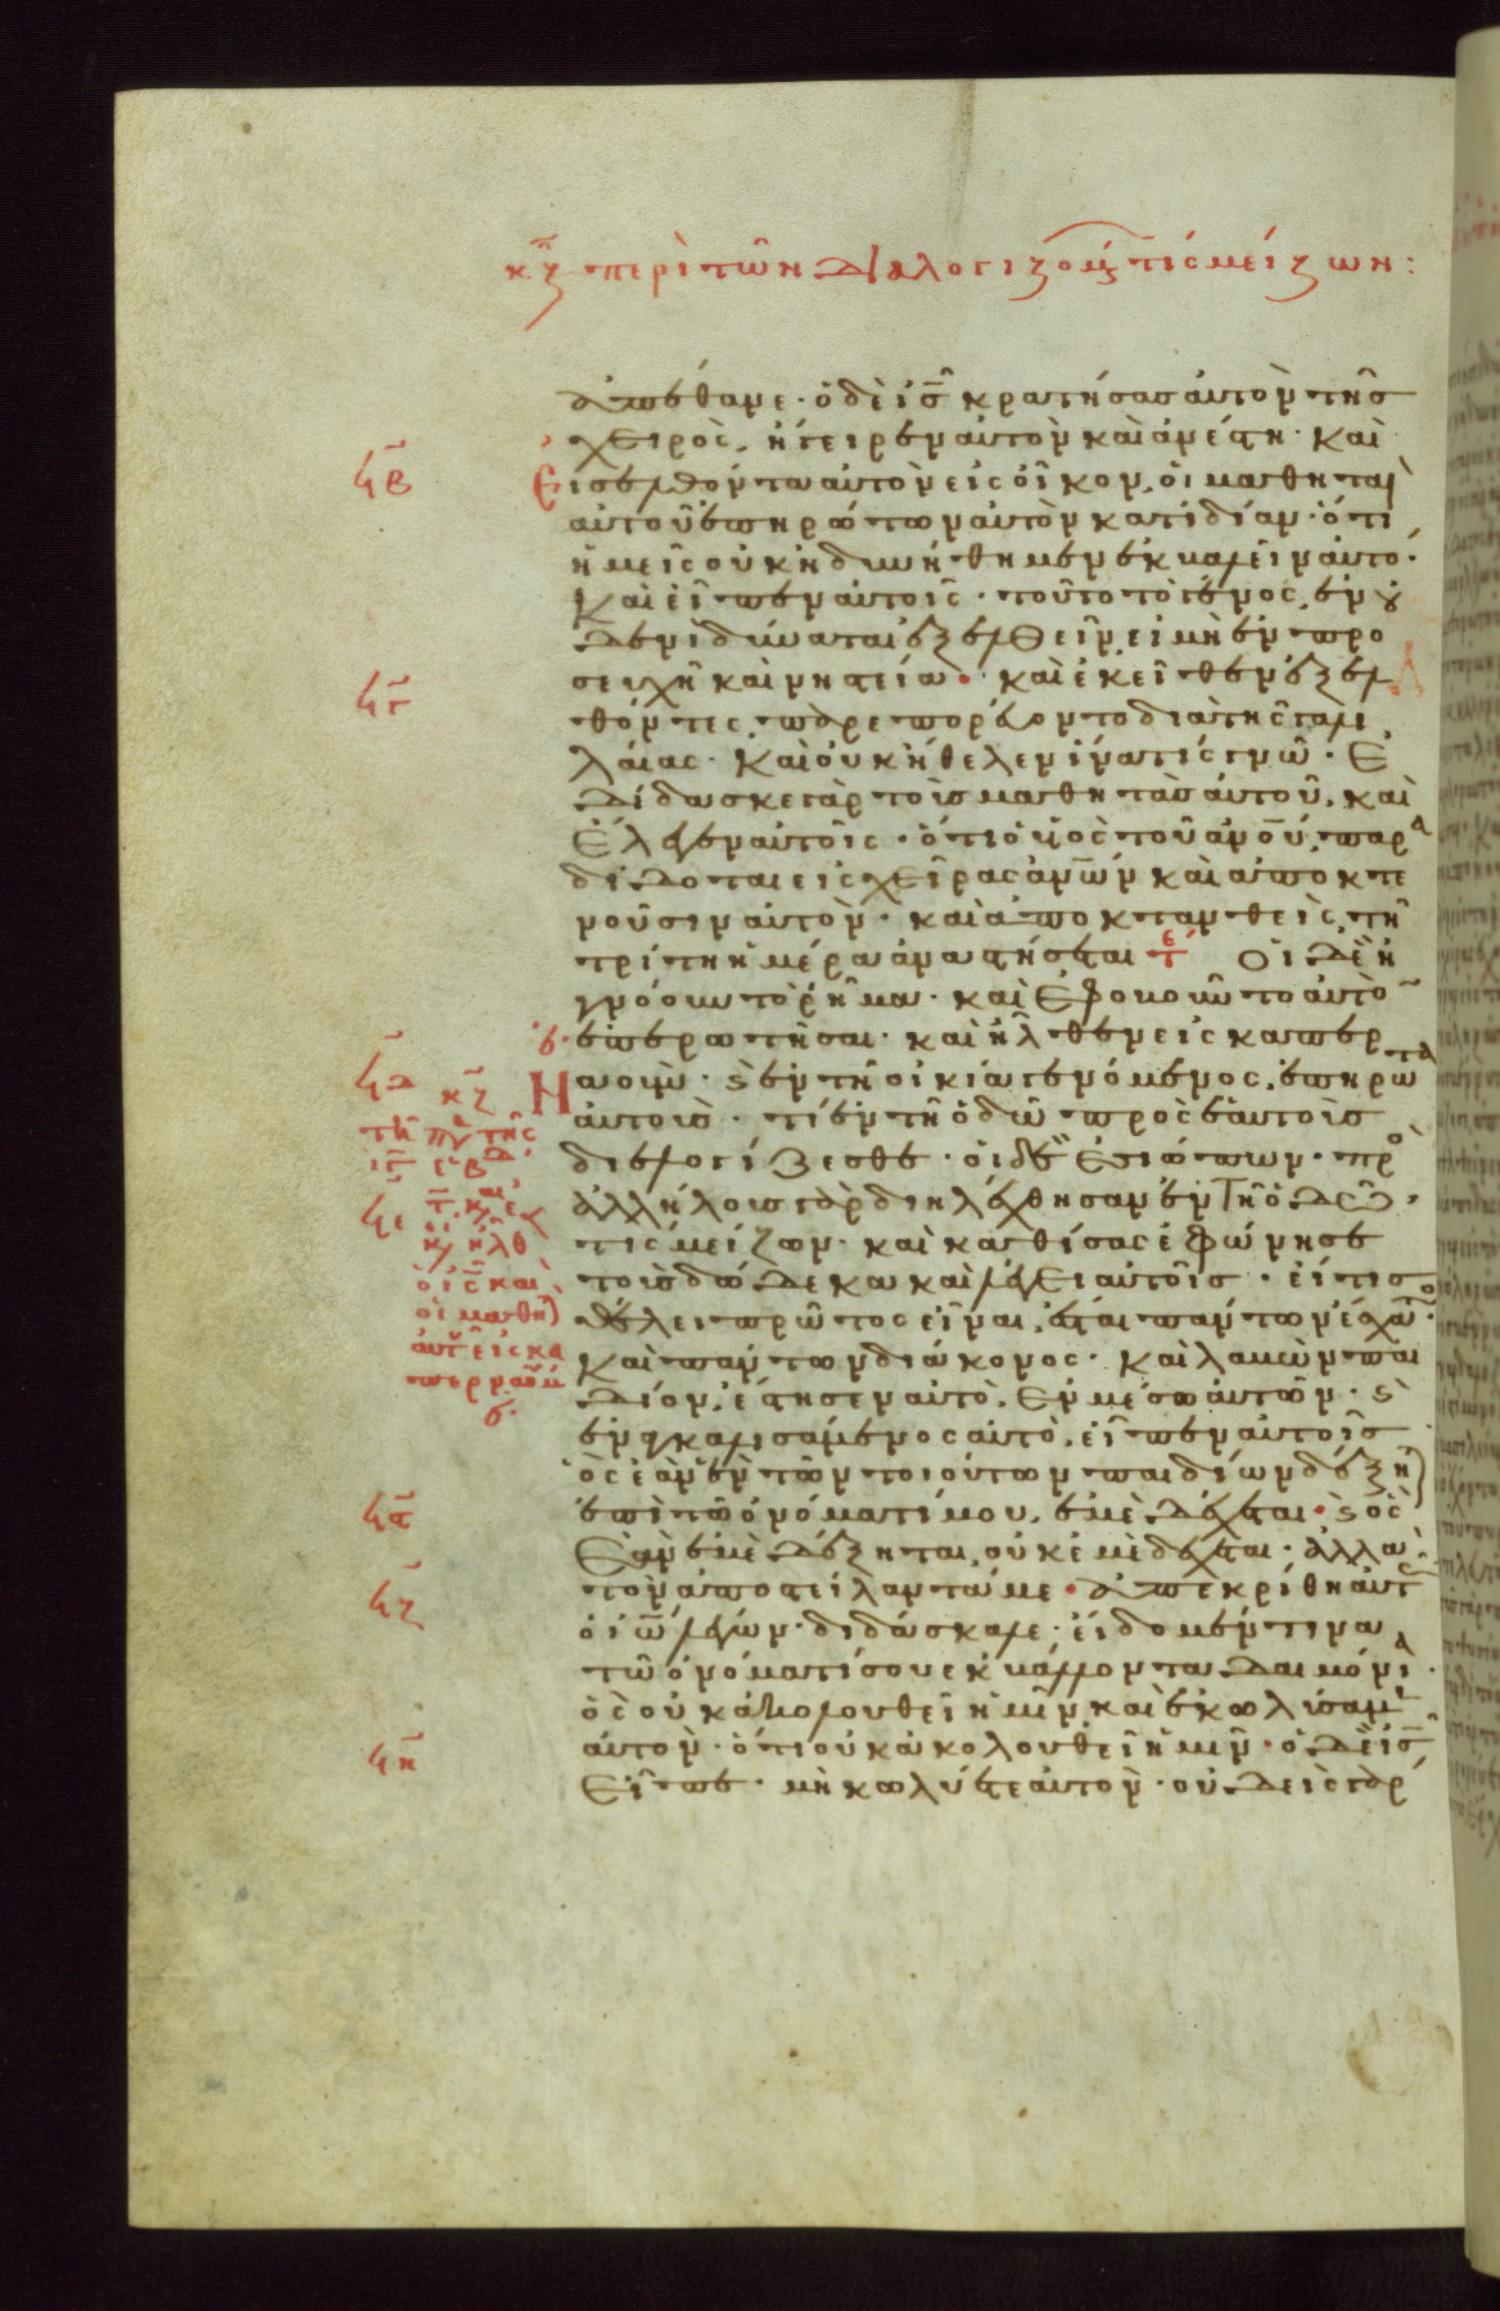 κζ περὶ τῶν διαλογιζομ τίς μείζων:
ἀπέθανε· ὁ δὲ ις κρατήσας αὐτὸν τῆς
χειρὸς, ἤγειρεν αὐτὸν καὶ ἀνέστη· Καὶ
εἰσελθόντα αὐτὸν εἰς οἶκον, οἱ μαθηταὶ
αὐτοῦ ἐπηρώτων αὐτὸν κατιδίαν· ὅτι
ἡμεῖς οὐκ ἠδυνήθημεν ἐκβαλεῖν αὐτό·
Καὶ εἶπεν αὐτοῖς· τοῦτο τὸ γένος, ἐν οὐ
δενὶ δύναται ἐξελθεῖν, εἰ μὴ ἐν προ
σευχῆ καὶ νηστεία· καὶ ἐκεῖθεν ἐξελ
θόντες, παρεπορεύοντο διὰ τῆς γαλι
λαίας· Καὶ οὐκ ἤθελεν ἵνα τίς γνῶ· Ε
δίδασκε γὰρ τοὺς μαθητὰς αὐτοῦ, καὶ
ἔλεγεν αὐτοῖς· ὅτι ὁ υἱὸς τοῦ ανου παρα
δίδοται εἰς χεῖρας ανων καὶ ἀποκτε
νοῦσιν αὐτὸν· καὶ ἀποκτανθεὶς, τῆ
τρίτη ἡμέρα ἀναστήσεται τε Οἱ δὲ ἠ
γνόουν τὸ ῥῆμα· καὶ ἐφοβοῦντο αὐτὸ
ἐπερωτῆσαι· καὶ ἦλθεν εἰς καπερ
κβ
κγ
κδ κζ
ναούμ· καὶ ἐν τῆ οἰκία γενόμενος, ἐπηρώτα
αὐτοὺς· τί ἐν τῆ ὁδῶ πρὸς ἑαυτοὺς
διελογίζεσθε· οἱ δὲ ἐσιώπων· προ
ἀλλήλους γὰρ διηλέχθησαν ἐν τῆ ὁδῶ,
τίς μείζων· καὶ καθίσας ἐφώνησε
τοὺς δώδεκα καὶ λέγει αὐτοῖς· εἴ τις
θέλει πρῶτος εἶναι, ἔσται πάντων ἔσχατο·
Καὶ πάντων διάκονος· Καὶ λαβὼν παι
δίον, ἔστησεν αὐτὸ, ἐν μέσω αὐτῶν· καὶ
ἐναγκαλισάμενος αὐτὸ, εἶπεν αὐτοῖς
ὃς ἐὰν ἓν τῶν τοιούτων παιδίων δέξη
ἐπὶ τῶ ὀνόματί μου, ἐμὲ δέχεται· καὶ ὃς
ἐὰν ἐμὲ δέξηται, οὐκ ἐμὲ δέχεται· ἀλλὰ
τὸν ἀποστείλαντά με· ἀπεκρίθη αὐτ
ὁ ιω λέγων· διδάσκαλε· εἴδομέν τινα
τῶ ὀνόματί σου ἐκβάλλοντα δαιμόνια·
ὃς οὐκ ἀκολουθεῖ ἡμῖν, καὶ ἐκωλύσαμ
αὐτὸν· ὅτι οὐκ ἀκολουθεῖ ἡμῖν· ὁ δὲ ις
εἶπε· μὴ κωλύετε αὐτὸν· οὐδεὶς γὰρ
τῆ τῆς
ἦλθ
ὁ ις καὶ
οἱ μαθη
αὐτ εἰς κα
περναούμ